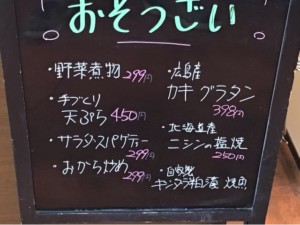 おそうざい
・野菜煮物 299円
・手づくり
天ぷら 450円
・サラダ・スパゲティー
299円
・おから炒め
299円
・広島産
カキグラタン
398円
・北海道産
ニシンの塩焼
250円
・自家製
キンダラ粕漬 焼魚